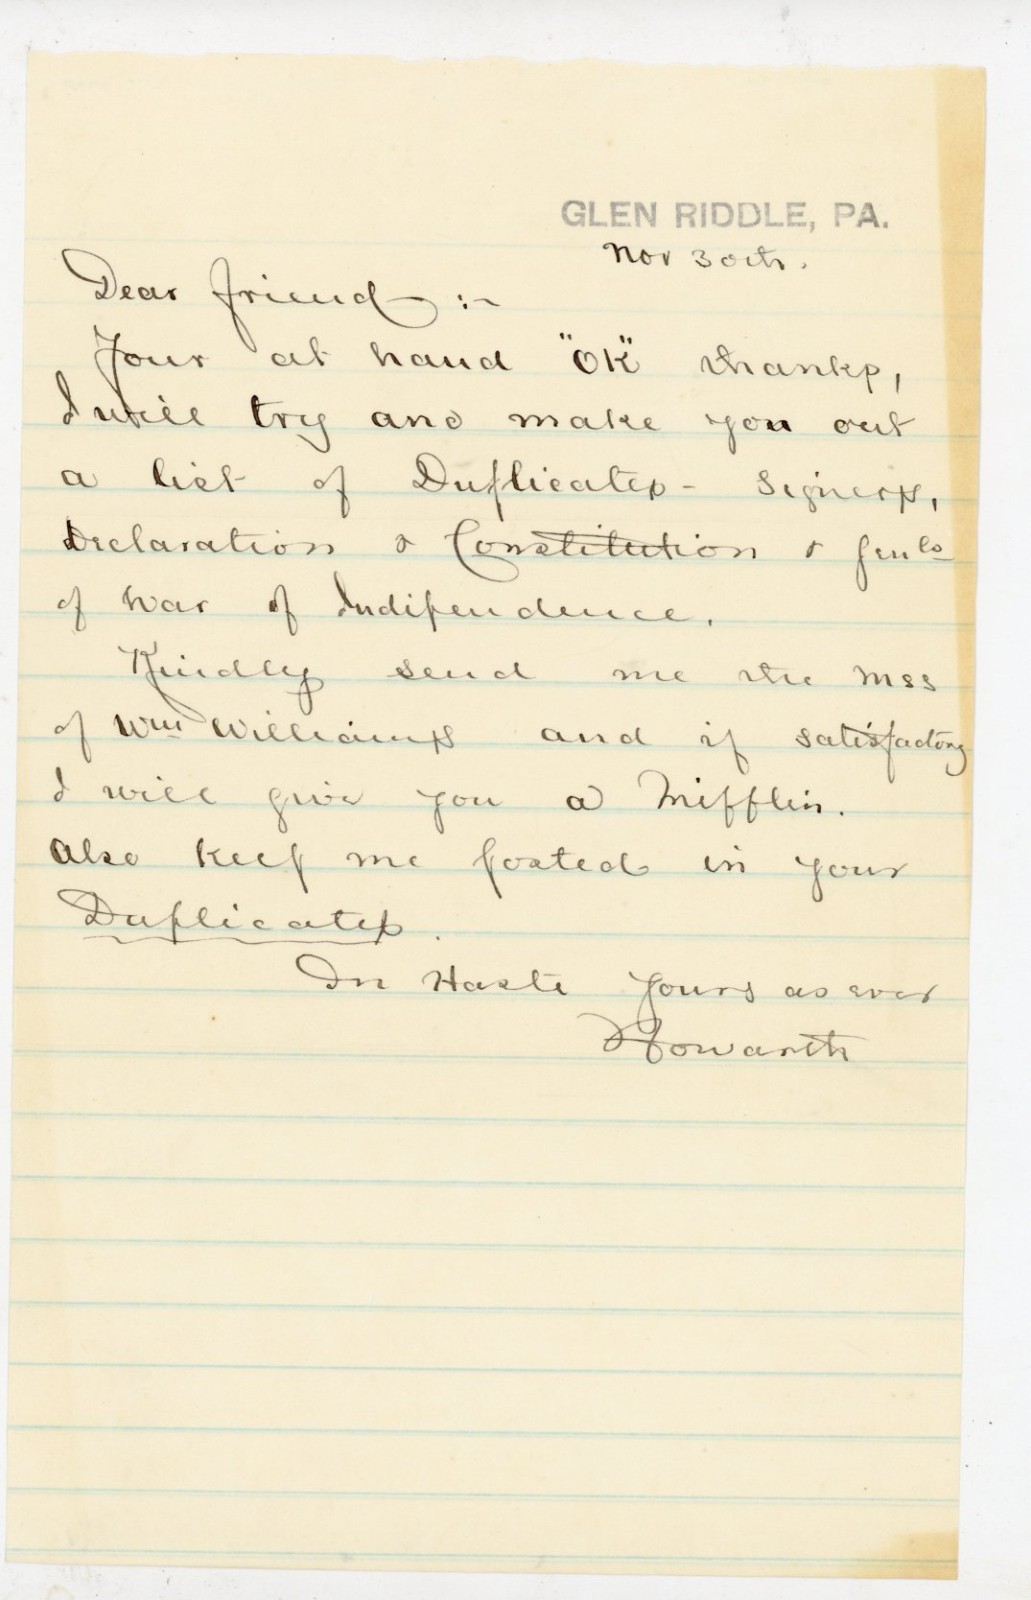 GLEN RIDDLE, PA.
Nov 30th.
Dear friend :-
Your at hand "OK" thanks,
I will try and make you out
a list of Duplicates - Signers,
Declaration & Constitution & Genls
of War of Independence.
Kindly send me the Mss
of Wm Williams and if satisfactory
I will give you a Mifflin.
Also keep me posted in your
Duplicates.
In Haste Yours as ever
Howarth